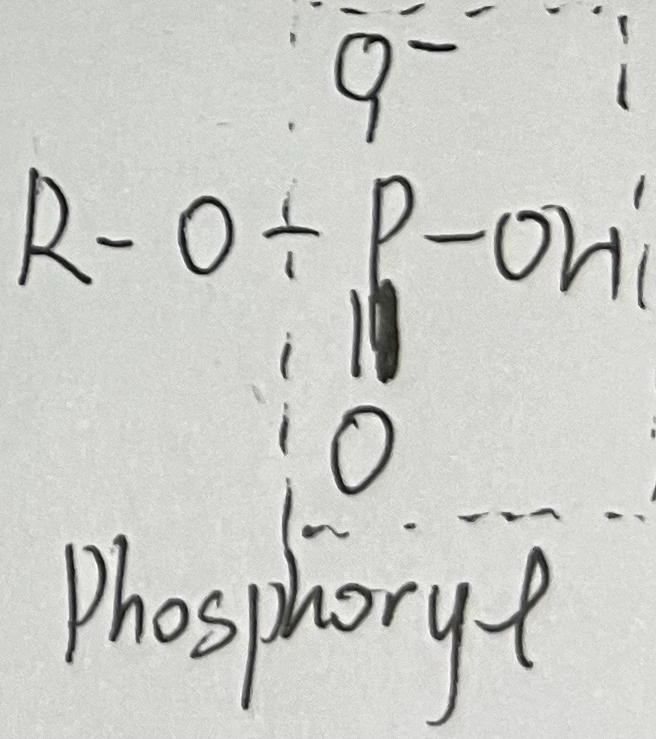 O-
R-O-P-OH
O
Phosphoryl